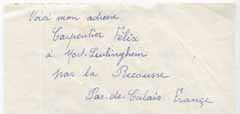 Voici mon adresse
Carpentier Félix
à Nort-Leulinghem
par la Recousse
Pas-de-Calais France